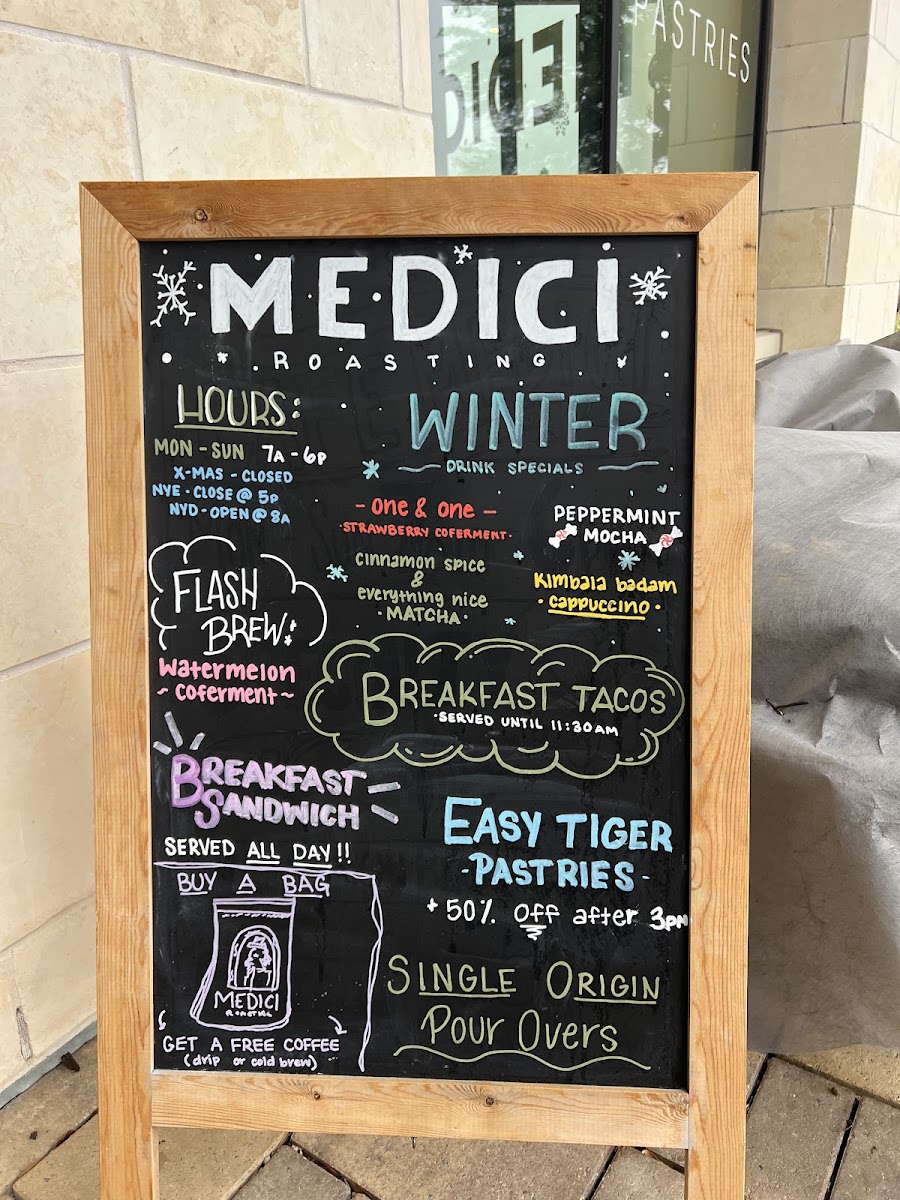 PASTRIES
MEDICI
MEDICI
ROASTING
HOURS:
MON - SUN 7A - 6P
X-MAS - CLOSED
NYE - CLOSE @ 5P
NYD - OPEN @ 8A
WINTER
DRINK SPECIALS
- one & one -
·STRAWBERRY COFERMENT·
cinnamon spice
&
everything nice
·MATCHA·
PEPPERMINT
MOCHA
Kimbala badam
· cappuccino ·
FLASH
BREW:
Watermelon
~ coferment ~
BREAKFAST TACOS
·SERVED UNTIL 11:30AM
BREAKFAST
SANDWICH
SERVED ALL DAY!!
EASY TIGER
·PASTRIES·
+ 50% Off after 3pm
BUY A BAG
MEDICI
ROASTING
GET A FREE COFFEE
(drip or cold brew)
SINGLE ORIGIN
Pour Overs